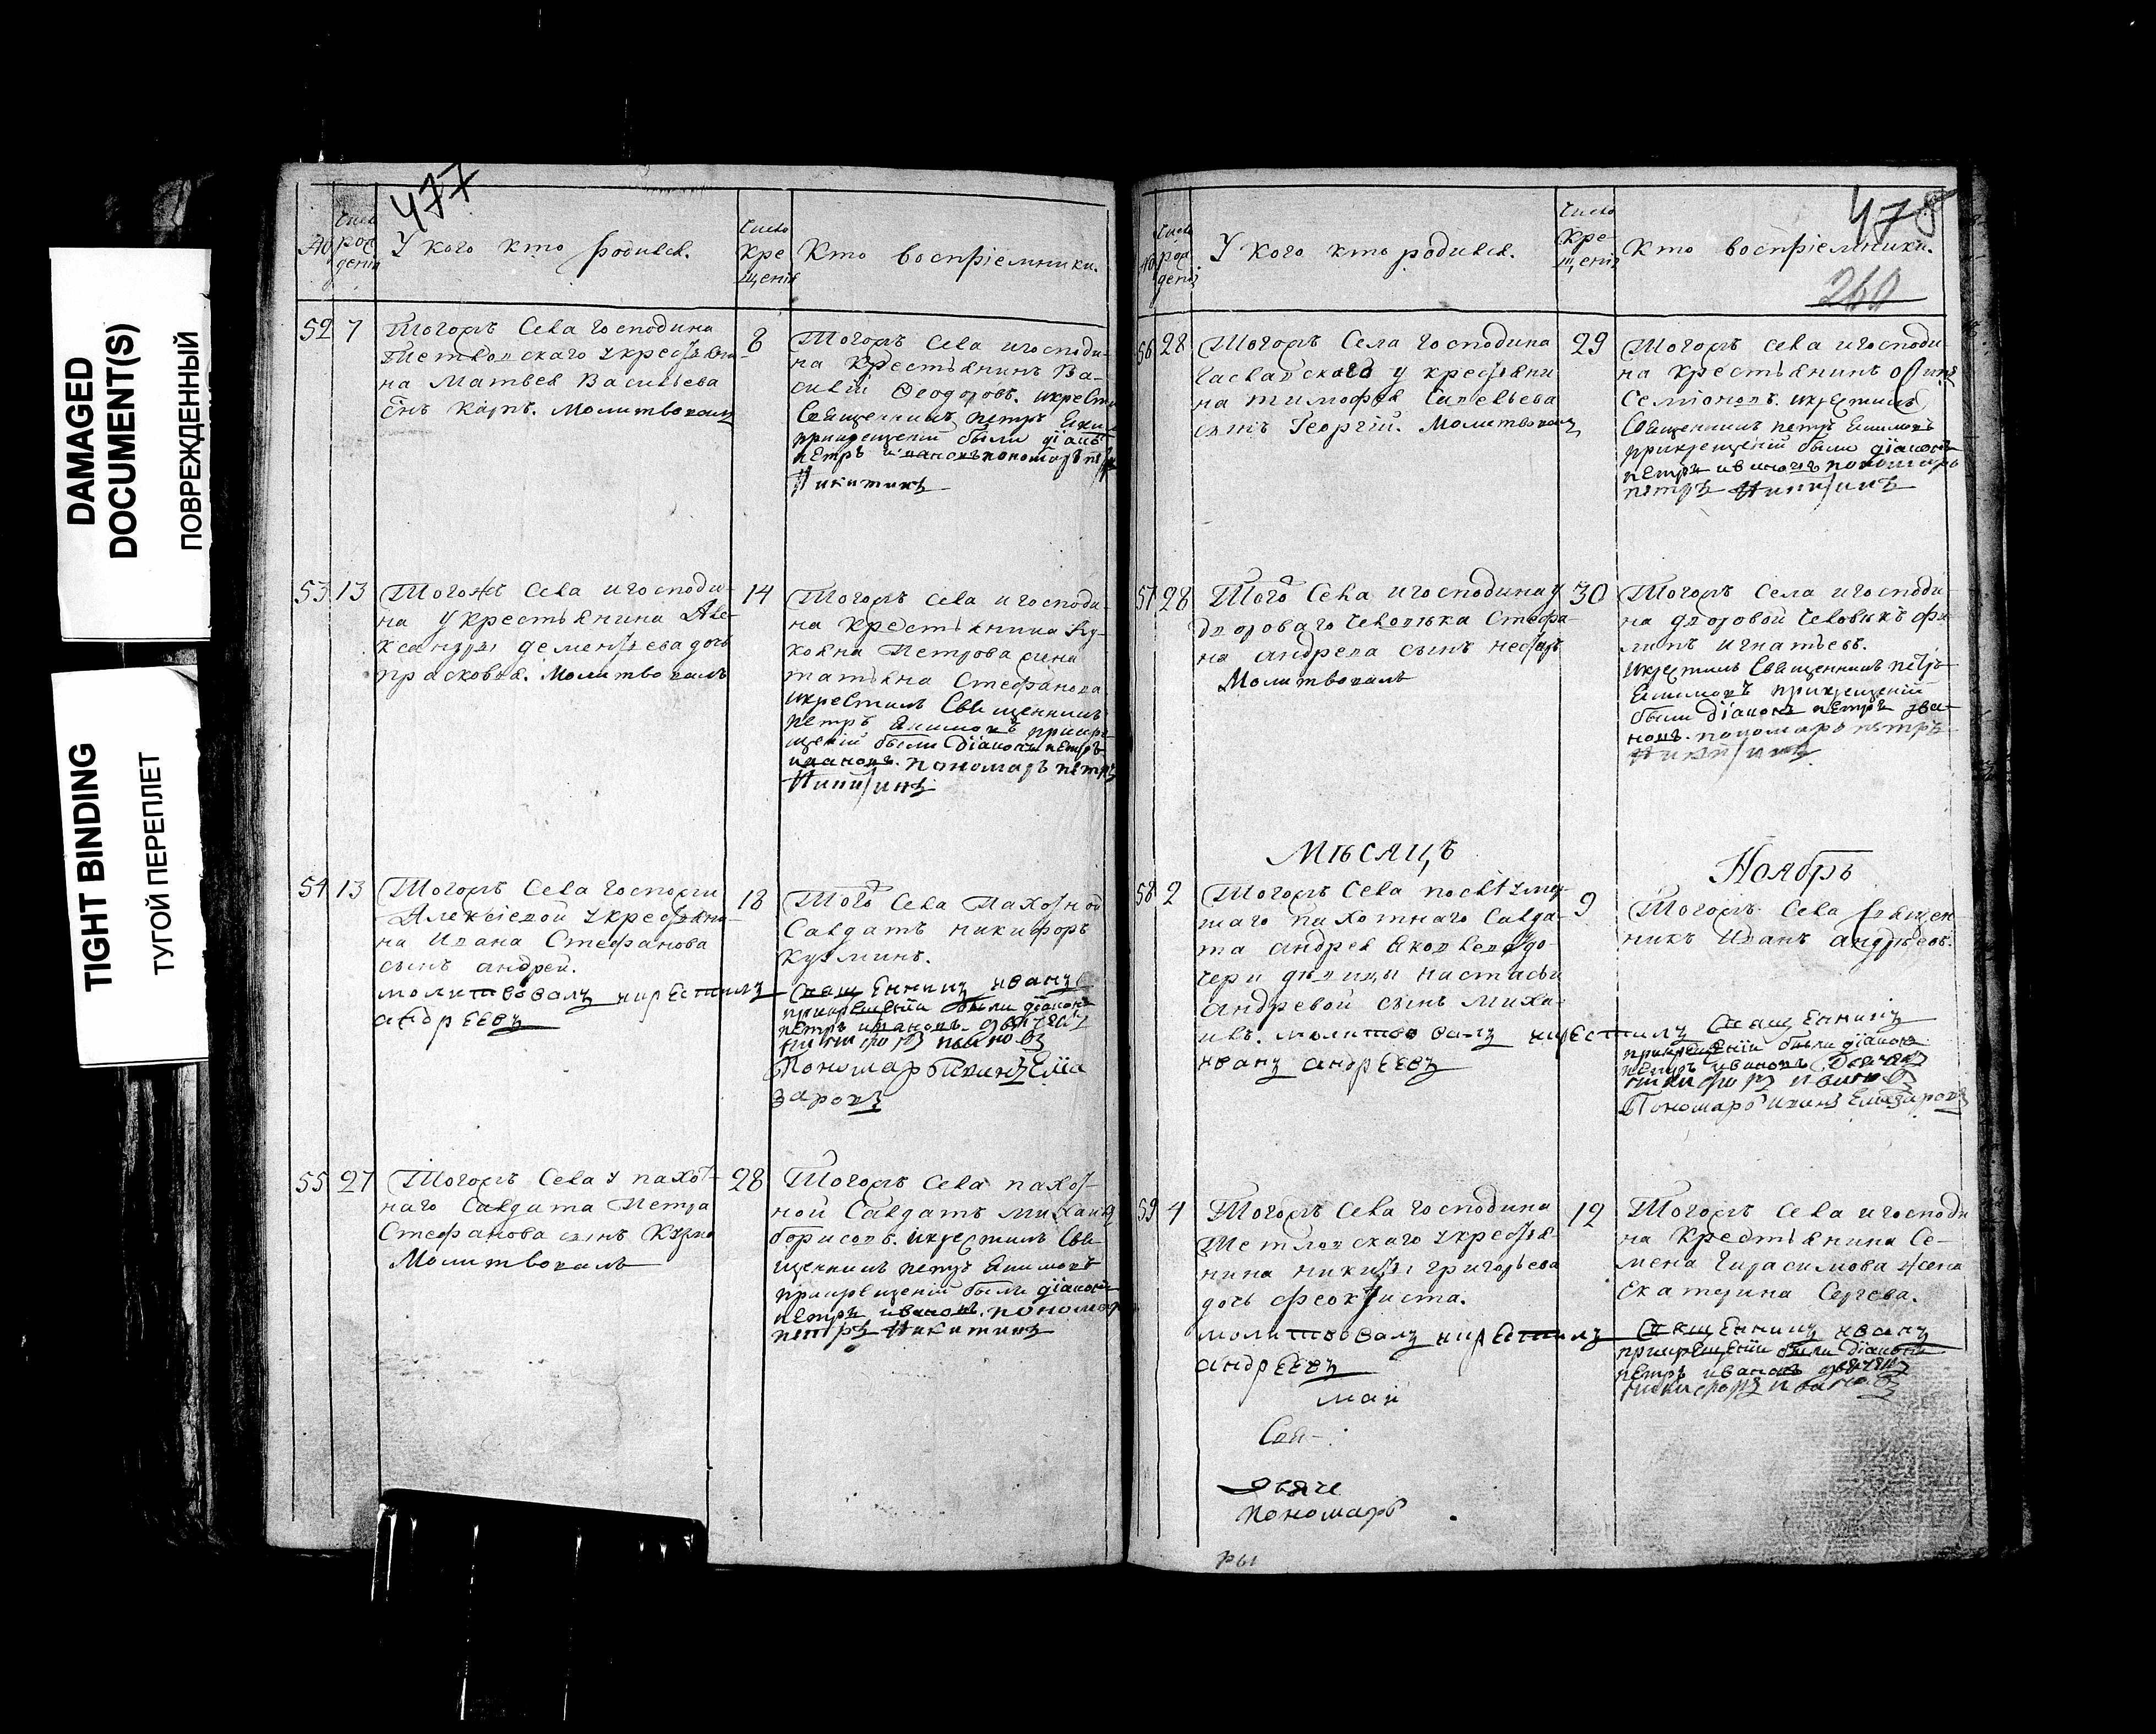 DAMAGED
DOCUMENT(S)
ПОВРЕЖДЕННЫЙ
TIGHT BINDING
ТУГОЙ ПЕРЕПЛЕТ
477
Число
рож
денія
У кого кто родился.
Число
кре
щенія
Кто воспріемники.
52 7
Тогожъ села господина
Петловскаго у крестьяни
на Матвея Васильева
снъ Карпъ. Молитвовалъ
8
Тогожъ села игосподи-
на крестьянинъ Ва-
силій Ѳеодоровъ. икрести
Священникъ петръ Еким
прикрещеніи были діако
петръ ивановъ пономарь
Никитинъ
53 13
Тогожъ села игосподи-
на у крестьянина Але-
ксандры дементьева дочь
прасковья. Молитвовалъ
14
Тогожъ села игосподи-
на крестьянина Лу-
кояна Петрова жена
татьяна Стефанова
икрестилъ Священникъ
петръ Екимовъ прикре
щеніи были діаконъ петръ
ивановъ. пономарь петръ
Никитинъ
54 13
Тогожъ села госпожи
Алексіевой у крестьяни-
на Ивана Стефанова
сынъ андрей.
молитвовалъ икрестилъ
андреевъ
18
Того села Пахотной
Салдатъ никифоръ
кузминъ.
Священникъ иванъ
прикрещеніи были діаконъ
петръ ивановъ. дьячекъ
никифоръ ивановъ
Пономарь Иванъ Елиа
заровъ
55 27
Тогожъ села у пахот-
наго Салдата Петра
Стефанова сынъ Кузма
Молитвовалъ
28
Тогожъ села пахот-
ной Салдатъ михаилъ
борисовъ. икрестилъ Свя
щенникъ петръ Екимовъ
прикрещеніи были діаконъ
петръ ивановъ. пономарь
петръ Никитинъ
478
Число
рож
денія
У кого кто родился.
Число
кре-
щенія
Кто воспріемники.
260
56 28
Тогожъ села господина
у крестьяни
на тимофея Савельева
сынъ Георгій. Молитвовалъ
29
Тогожъ села игосподи-
на крестьянинъ
Семіоновъ. икрестилъ
Священникъ петръ Екимовъ
прикрещеніи были діаконъ
петръ ивановъ пономарь
петръ Никитинъ
57 28
Того села игосподина у
двороваго человѣка Стефа-
на андреева сынъ несторъ
Молитвовалъ
30
Тогожъ села игосподи
на дворовой человѣкъ фи
липъ игнатьевъ.
икрестилъ Священникъ петръ
Екимовъ прикрещеніи
были діаконъ петръ ива-
новъ. пономарь петръ
Никитинъ
Мѣсяцъ
Ноябрь
58 2
Тогожъ села послѣ умер-
шаго пахотнаго Салда-
та андрея Яковлева у до-
чери дѣвицы настасьи
андревой сынъ миха-
илъ. молитвовалъ икрестилъ
иванъ андреевъ
9
Тогожъ села священ-
никъ Иванъ андреевъ.
Священникъ
прикрещеніи были діаконъ
петръ ивановъ дьячекъ
никифоръ ивановъ
Пономарь Иванъ Елиазаровъ
59 4
Тогожъ села господина
Петловскаго у крестья-
нина никиты григорьева
дочь феоктиста.
молитвовалъ икрестилъ
андреевъ
12
Тогожъ села игосподи
на крестьянина Се-
мена Гирасимова жена
Екатерина Сергева.
Священникъ иванъ
прикрещеніи были діаконъ
петръ ивановъ дьячекъ
никифоръ ивановъ
май
Свя-
дьяче
пономарь